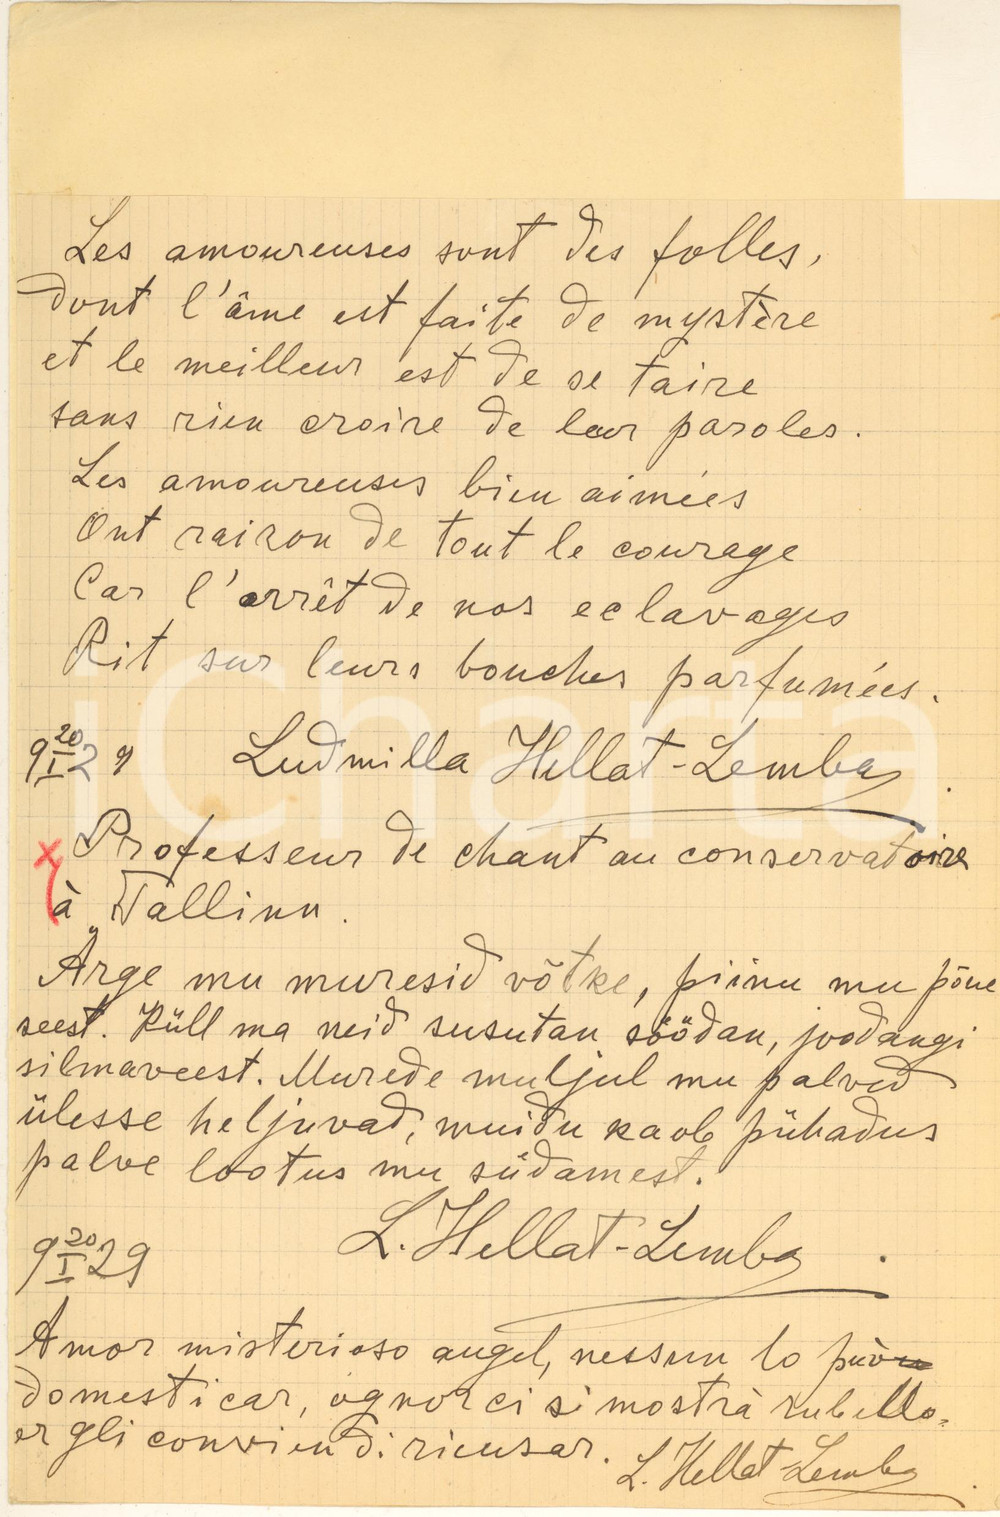 Les amoureuses sont des folles,
dont l'âme est faite de mystère
et le meilleur est de se taire
sans rien croire de leur paroles.
Les amoureuses bien aimées
Ont raison de tout le courage
Car l'arrêt de nos eclavages
Rit sur leurs bouches parfumées.
9 20/I 29 Ludmilla Hellat-Lemba
Professeur de chant au conservatoire
à Tallinn.
Ärge mu muresid võtke, piinu mu põue
seest. Küll ma neid susutan söödan, joodangi
silmaveest. Murede muljul mu palved
ülesse heljuvad, muidu kaob pühadus
palve lootus mu südamest.
9 20/I 29 L. Hellat-Lemba
Amor misterioso augel, nessun lo può
domesticar, ognor ci si mostrà rubello.
er gli convien di ricusar. L. Hellat-Lemba
iCharta